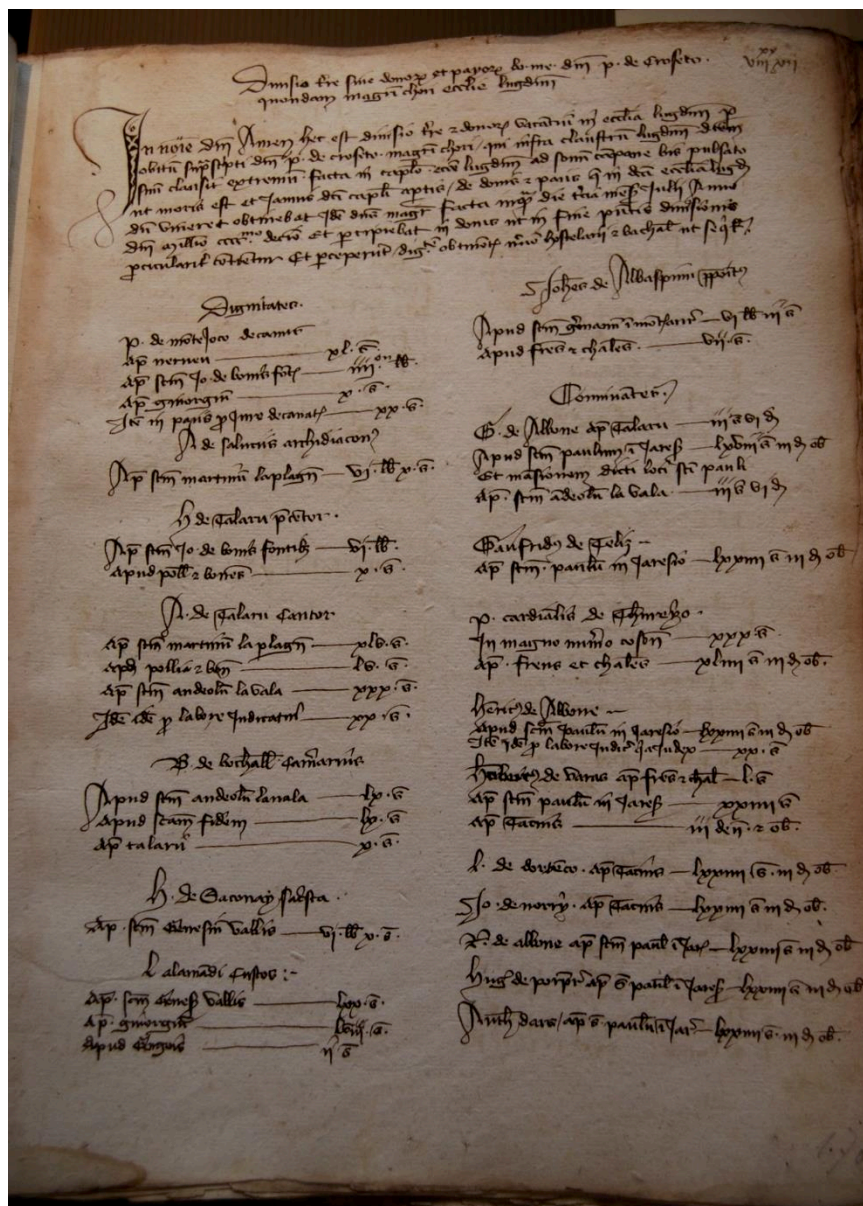 Divisio t're sive donor' et panor' do. me. dni p. de Croseto.
quondam magri chori ecclie lugduni
xx
viii xvii
In noie dni Amen hec est divisio t're & donor' vacatiu in ecclia lugduni p
obitu sup'scripti dni p. de croseto. magri chori / qui infra claustru lugduni diem
suu clausit extremu. facta in capl'o ecce lugduni ad sonu campane bis pulsato
ut moris est et januis dci capli aptis / de domo & panis q in dca ecclia lugd'
du viveret obtinebat ide dns magr facta inq' die t'cia mes' Julii Anno
dni millio cccc mo decio Et p'cipiebat in donis ut in fine p'ntis divisionis
p'ticularit' continetur Et p'ceperut / dig' obtinet' hostelarii & bachal' ut seqr
Dignitates.
p. de montejoco decanus
Ap verneu xl. s.
Ap scm Jo. de bonis fot' iiii or lb.
Ap gimorgiu x. s.
Ite in panis p jure decanat' xx. s.
A de saluciis archidiacon'
Ap scm martinu laplagn vi. lb x. s.
H de Talaru p'centor.
Ap scm Jo. de bonis fontib' vi. lb.
Apud poll' & bones x. s.
A. de Talaru Cantor
Ap scm martinu la plagn xlv. s.
apd pollia & bon lv. s.
Ap scm andeolu la vala xxx. s.
Ide ide p labore Judicatur' xx. s.
B. de bochall' Cam'arius
Apud scm andeolu lavala lx. s
Apud scam fidem lx. s
Ap talaru x. s.
H. de Saconay sac'sta.
Ap. scm Genesiu vallis vi. lb x. s.
l alamadi Custos :-
Ap. scm genes' vallis lxx. s.
Ap. gimorgiu s.
Apud ii s
Johes de Albaspinu pposit'
Apud scm g'manu i montauru vi lb iii s
Apud fres & chales vii. s.
Cominater.
G. de Albone ap Talaru iii s vi d
Apud scm paulum i Jares' lxxiiii s iii d ob
Et mansionem dicti loci sci pauli
Ap. scm adeolu la vala iii s vi d
Gaufridus de Teliz
Ap scm. paulu in Jaresio lxxiiii s iii d ob
p. cardialis de Thureyo.
In magno num'o coson xxx s
Ap. frens et chales xliiii s iii d ob.
Henric' de Albone
Apud scm paulu in Jaresio lxxiiii s iii d ob
Ite ide p labore xx. s
de varas ap fres & chal l. s
Ap scm paulu in Jares' xxiiii s
Ap Tacins iii den. & ob.
l. de ap Tacins lxxiiii s. iii d ob.
Jo. de norry. ap Tacins lxxiiii s iii d ob.
R. de albone ap scm paul i Jar' lxxiiii s iii d ob
Hug' de ap s paul i Jares' lxxiiii s iii d ob
Anth dars / ap s paulu i Jar' lxxiiii s. iii d ob.